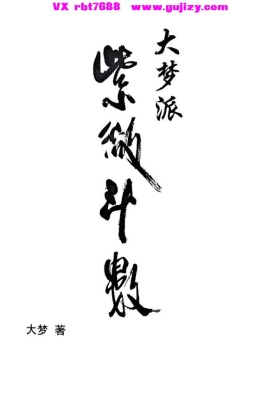 VX rbt7688 www.gujizy.com
大梦派
紫微斗数
大梦 著